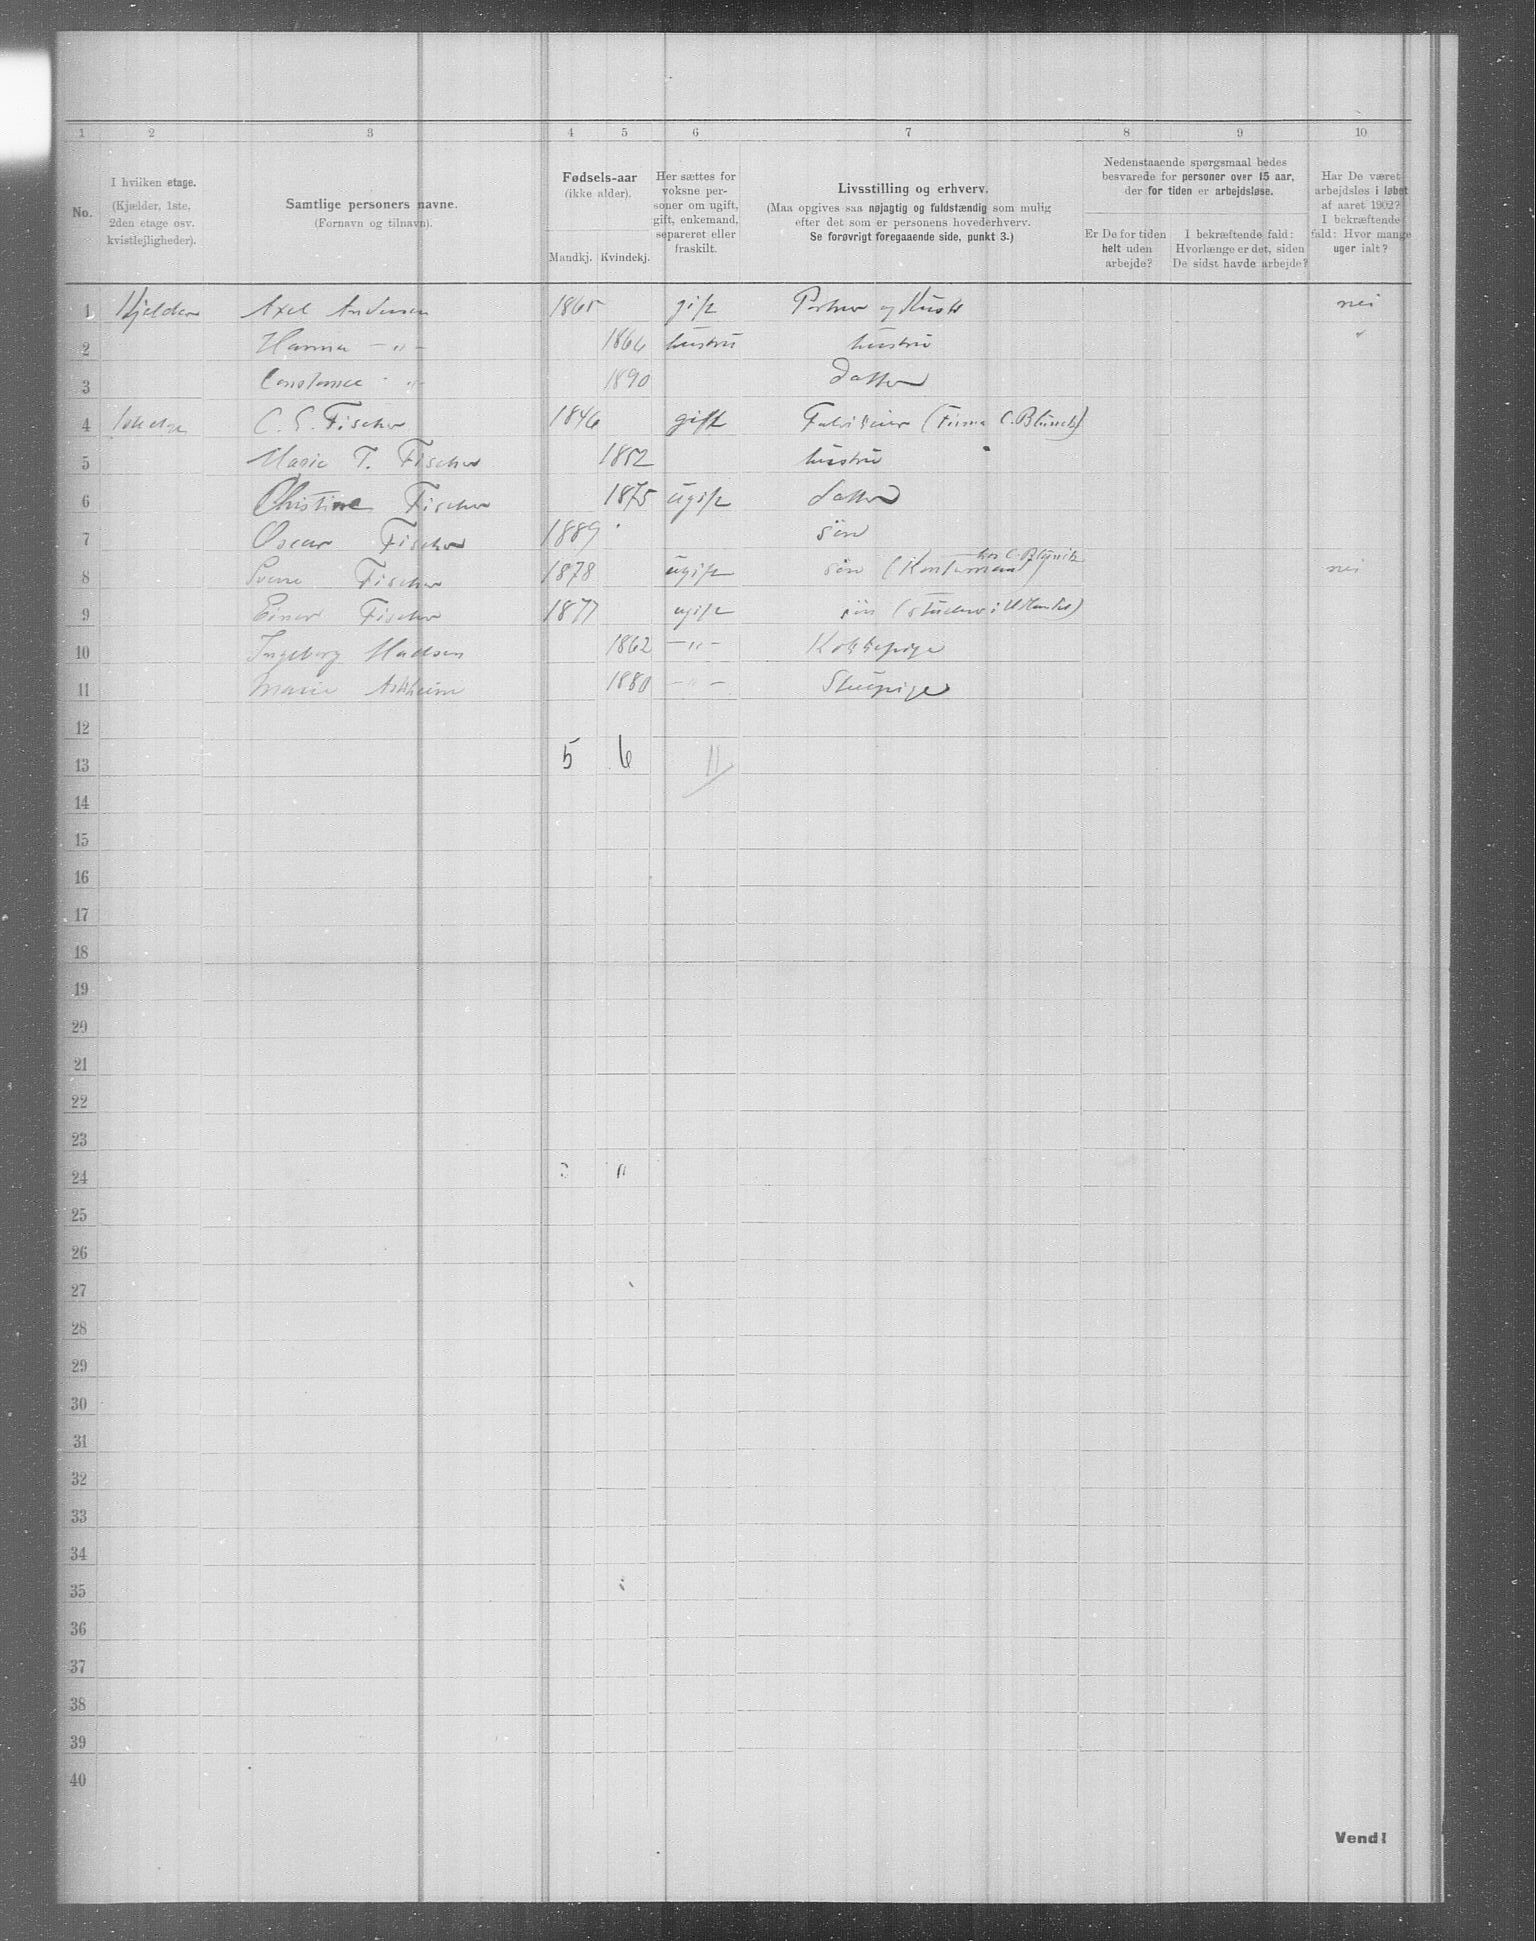 1 2 3 4 5 6 7 8 9 10
No.
I hvilken etage.
(Kjælder, 1ste,
2den etage osv.
kvistlejligheder).
Samtlige personers navne.
(Fornavn og tilnavn).
Fødsels-aar
(ikke alder).
Mandkj. Kvindekj.
Her sættes for
voksne per-
soner om ugift,
gift, enkemand,
separeret eller
fraskilt.
Livsstilling og erhverv.
(Maa opgives saa nøjagtig og fuldstændig som mulig
efter det som er personens hovederhverv.
Se forøvrigt foregaaende side, punkt 3.)
Nedenstaaende spørgsmaal bedes
besvarede for personer over 15 aar,
der for tiden er arbejdsløse.
Er De for tiden
helt uden
arbejde?
I bekræftende fald:
Hvorlænge er det, siden
De sidst havde arbejde?
Har De været
arbejdsløs i løbet
af aaret 1902?
I bekræftende
fald: Hvor mange
uger ialt?
1 Kjelder Axel Andersen 1865 gift Portner og nei
2 Hanna -"- 1864 hustru hustru "
3 Constance " 1890 Datter
4 C. E. Fischer 1846 gift (Firma C. Blünck)
5 Marie T. Fischer 1852 hustru
6 Christine Fischer 1875 ugift datter
7 Oscar Fischer 1889 søn
8 Fischer 1878 ugift søn (Kontormand hos C. Blünck) nei
9 Einar Fischer 1877 ugift søn
10 Ingeborg Madsen 1862 -"- Kokkepige
11 Marie 1880 -"- Stuepige
12
13 5 6 11
14
15
16
17
18
19
20
21
22
23
24
25
26
27
28
29
30
31
32
33
34
35
36
37
38
39
40
Vend!